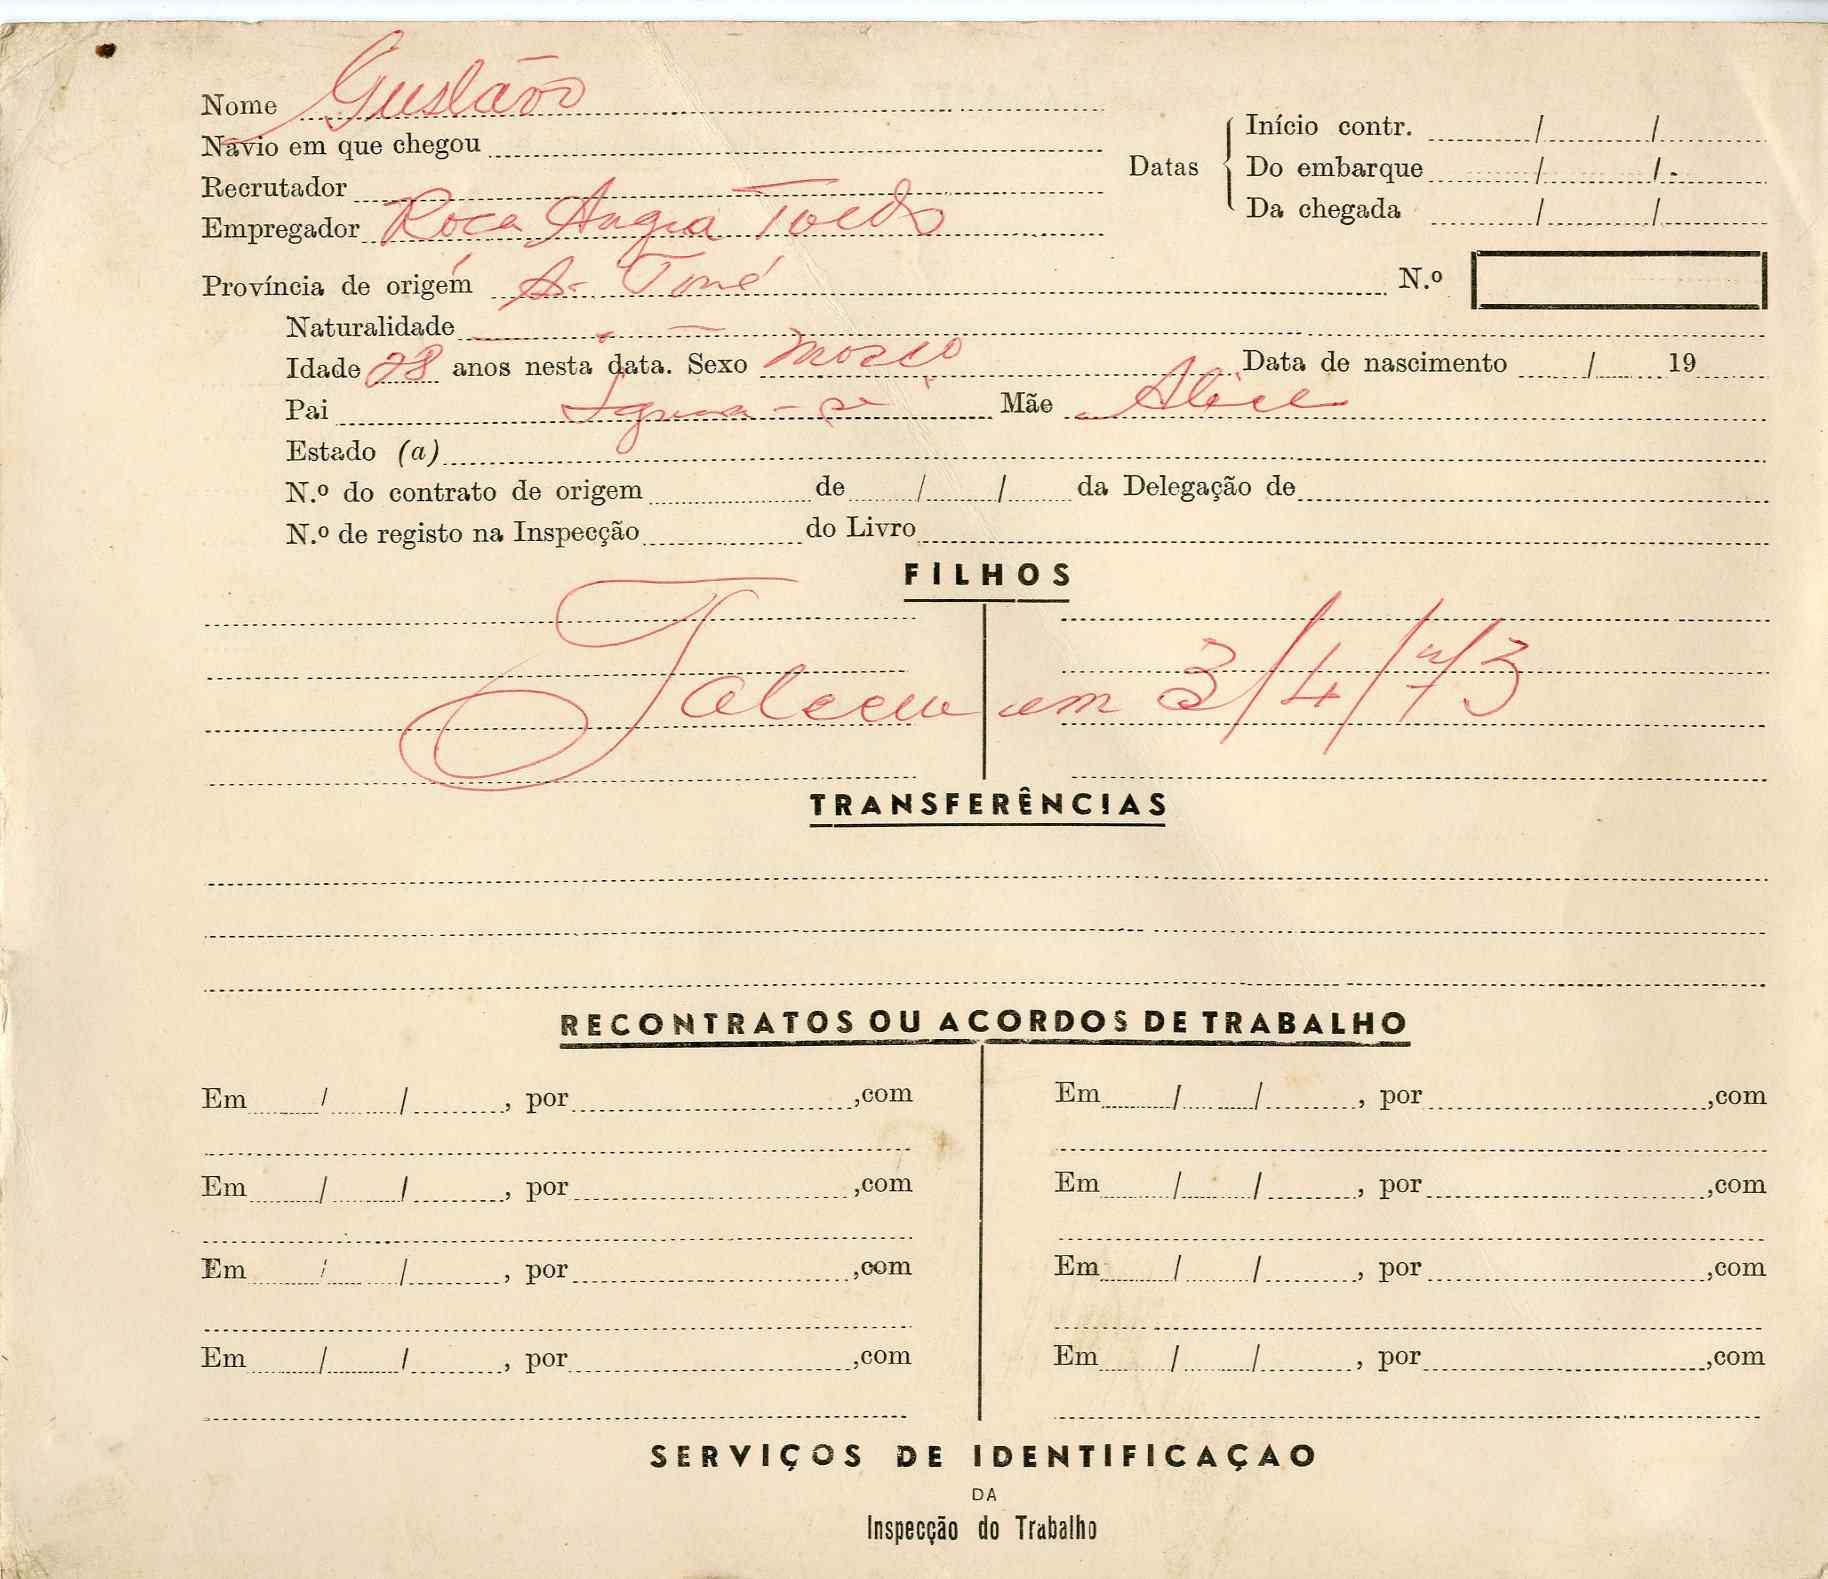 Nome Gustavo
Navio em que chegou
Recrutador
Empregador Roca Angra Toldo
Datas
Início contr. / /
Do embarque / /
Da chegada / /
Província de origem S. Tomé N.º
Naturalidade
Idade 28 anos nesta data. Sexo Data de nascimento / 19
Pai Ignora-se Mãe Alice
Estado (a)
N.º do contrato de origem de / / da Delegação de
N.º de registo na Inspecção do Livro
FILHOS
Faleceu em 3/4/73
TRANSFERÊNCIAS
RECONTRATOS OU ACORDOS DE TRABALHO
Em / / , por ,com Em / / , por ,com
Em / / , por ,com Em / / , por ,com
Em / / , por ,com Em / / , por ,com
Em / / , por ,com Em / / , por ,com
SERVIÇOS DE IDENTIFICAÇAO
DA
Inspecção do Trabalho